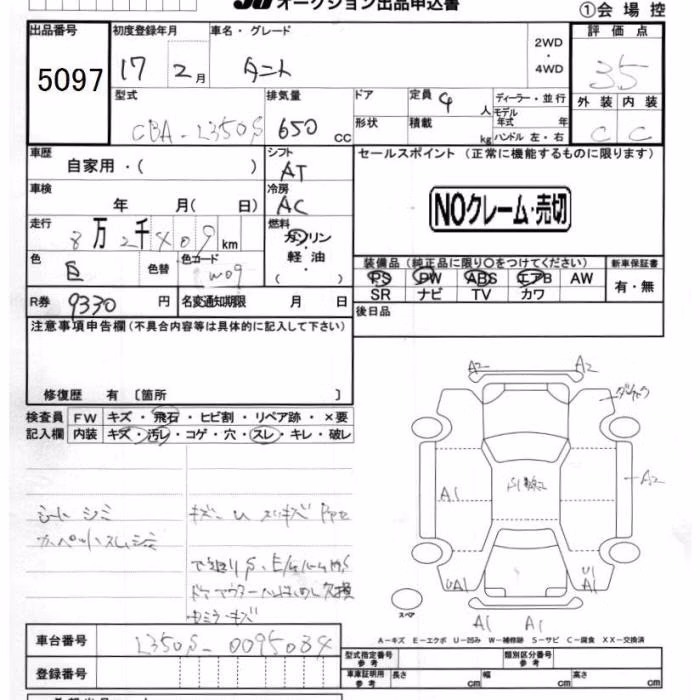 オークション出品申込書
①会場控
出品番号 5097
初度登録年月 17年 2月
車名・グレード タント
2WD・4WD
評価点 3.5
型式 CBA-L350S
排気量 650 CC
ドア
形状
定員 4人
積載 kg
ディーラー・並行
モデル年式 年
ハンドル 左・右
外装 C
内装 C
車歴 自家用・( )
シフト AT
セールスポイント (正常に機能するものに限ります)
車検 年 月( 日)
冷房 AC
NOクレーム・売切
走行 8万2千409km
燃料 ガソリン 軽油・( )
色 白
色替
色コード W09
装備品 (純正品に限り○をつけてください)
PS PW ABS エアB AW
SR ナビ TV カワ
新車保証書 有・無
R券 9330円
名変通知期限 月 日
後日品
注意事項申告欄(不具合内容等は具体的に記入して下さい)
修復歴 有 〔箇所 〕
検査員記入欄
FW キズ・飛石・ヒビ割・リペア跡・×要
内装 キズ・汚レ・コゲ・穴・スレ・キレ・破レ
シート シミ
A2 A2
A1 A2
UA1 U A1
A1 A1
スペア
A-キズ E-エクボ U-凹み W-補修跡 S-サビ C-腐食 XX-交換済
車台番号 L350S-0095084
型式指定番号 参考
類別区分番号 参考
登録番号
車庫証明用 参考 長さ cm 幅 cm 高さ cm